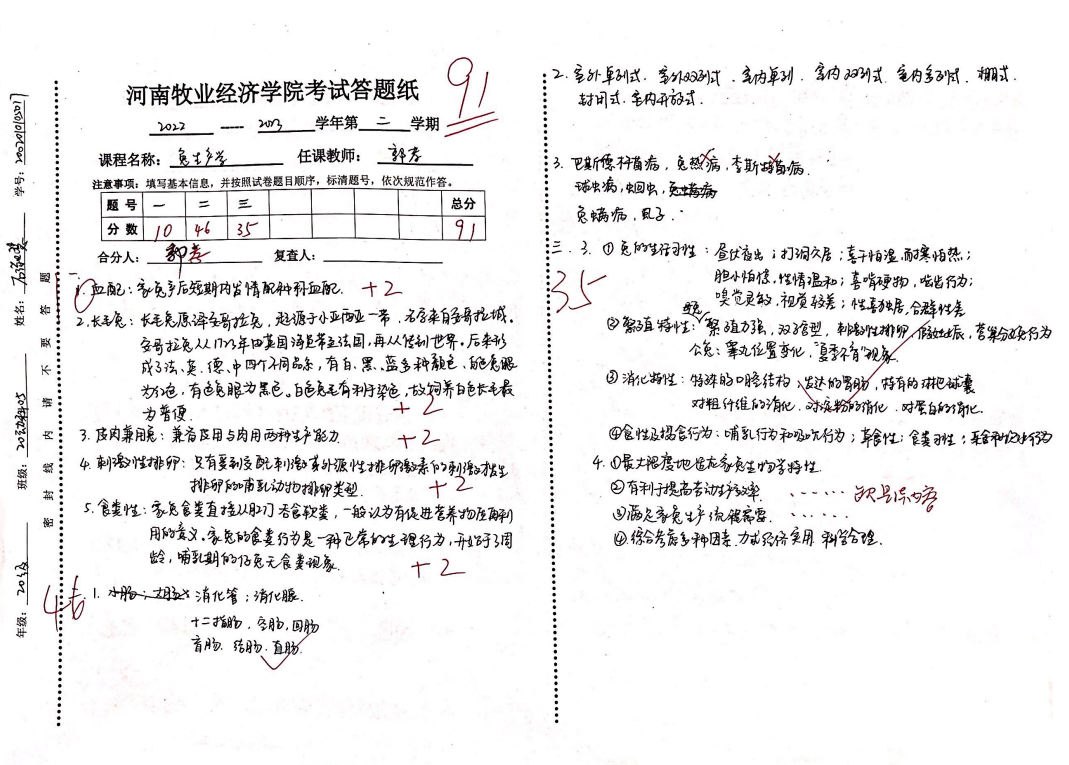 河南牧业经济学院考试答题纸
91
2022 ---- 2023 学年第 二 学期
课程名称: 兔生产学 任课教师:
注意事项: 填写基本信息,并按照试卷题目顺序,标清题号,依次规范作答。
题 号 一 二 三 总分
分 数 10 46 35 91
合分人: 复查人:
年级: 20级 班级: 姓名: 学号:
密 封 线 内 请 不 要 答 题
一.
1. 血配: 家兔产后短期内发情配种称血配. +2
2. 长毛兔: 长毛兔原译安哥拉兔, 起源于小亚细亚一带, 名字来自安哥拉城。
安哥拉兔从1723年由英国海员带至法国,再从传到世界。后来形
成了法、英、德、中四个不同品系, 有白、黑、蓝多种颜色, 白色兔眼
为红色, 有色兔眼为黑色。白色兔毛有利于染色, 故饲养白色长毛最
为普便. +2
3. 皮肉兼用兔: 兼备皮用与肉用两种生产能力 +2
4. 刺激性排卵: 只有受到交配刺激或外源性排卵激素的刺激才发生
排卵的哺乳动物排卵类型. +2
5. 食粪性: 家兔食粪直接从肛门吞食软粪, 一般认为有促进营养物质再利
用的意义。家兔的食粪行为是一种正常的生理行为, 开始于3周
龄, 哺乳期的仔兔无食粪现象. +2
46
1. 消化管; 消化腺.
十二指肠, 空肠, 回肠
盲肠. 结肠. 直肠.
2. 室外单列式. 室外双列式. 室内单列. 室内双列式. 室内多列式. 棚式.
封闭式. 室内开放式.
3. 巴斯德杆菌病, 兔热病, 李斯特菌病.
球虫病, 蛔回虫,
兔螨病, 虱子.
35
三. 3. ① 兔的生活习性: 昼伏夜出; 打洞穴居; 喜干怕湿, 耐寒怕热;
胆小怕惊, 性情温和; 喜啃硬物, 啮齿行为;
嗅觉灵敏, 视觉较差; 性喜独居, 合群性差
② 繁殖特性: 母兔: 繁殖力强, 双子宫型, 刺激性排卵, 假妊娠, 营巢分娩行为
公兔: 睾丸位置变化, "夏季不育"现象
③ 消化特性: 特殊的口腔结构, 发达的胃肠, 特有的淋巴球囊
对粗纤维的消化. 对淀粉的消化. 对蛋白的消化.
④ 食性及摄食行为: 哺乳行为和吸吮行为; 草食性; 食粪习性;
4. ① 最大限度地适应家兔生物学特性.
② 有利于提高劳动生产效率. ······ 缺具体内容
③ 满足家兔生产流程需要. ······
④ 综合考虑多种因素. 力求经济实用, 科学合理.